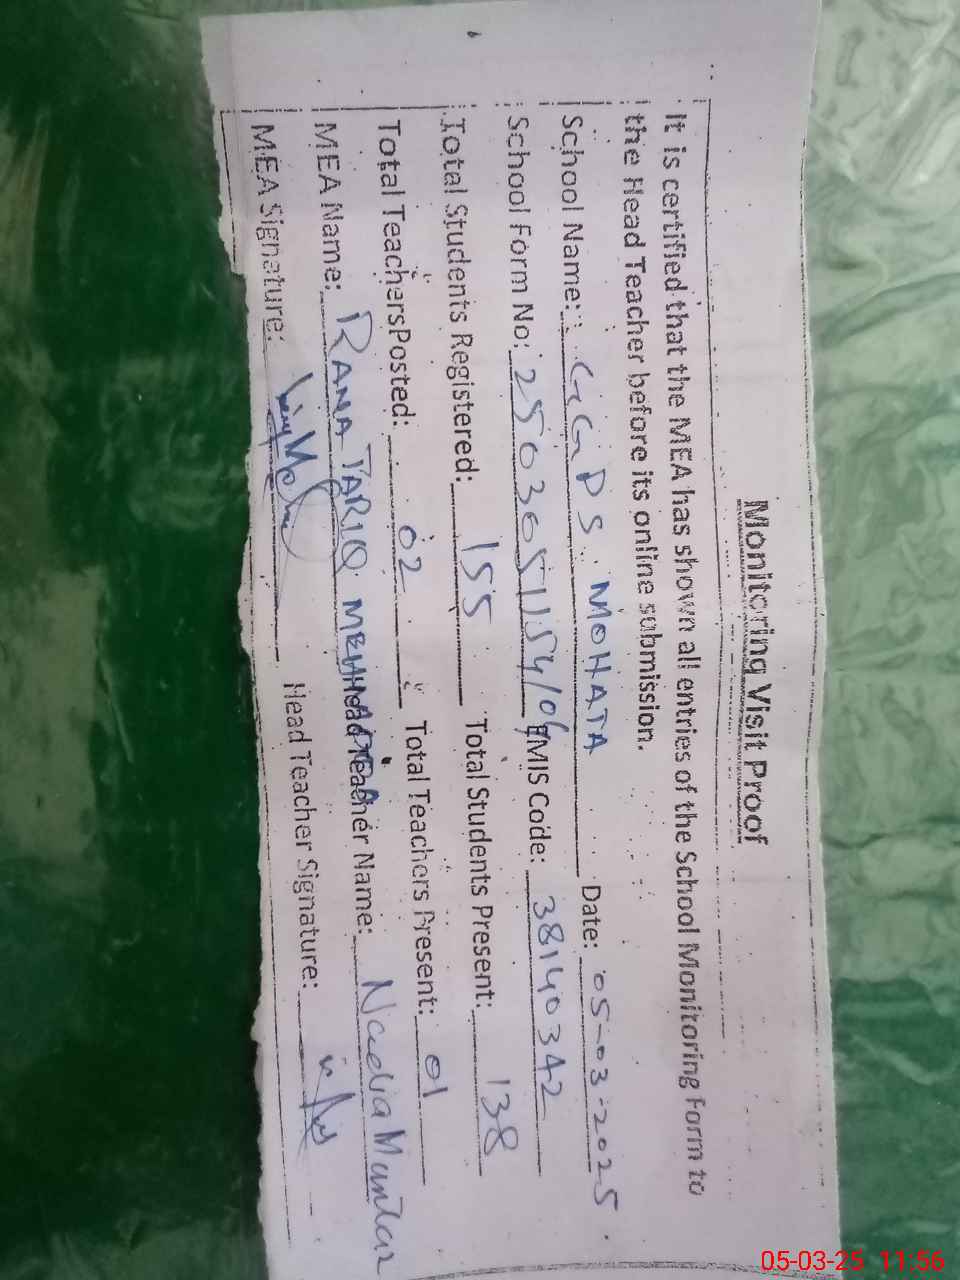 Monitoring Visit Proof
It is certified that the MEA has shown all entries of the School Monitoring Form to
the Head Teacher before its online submission.
School Name: GGPS MOHATA Date: 05-03-2025
School Form No: 25030511154/04 EMIS Code: 38140342
Total Students Registered: 155 Total Students Present: 138
Total TeachersPosted: 02 Total Teachers Present: 01
MEA Name: RANA TARIQ Head Teacher Name: Nadia Mumtaz
MEA Signature: Head Teacher Signature:
05-03-25 11:56